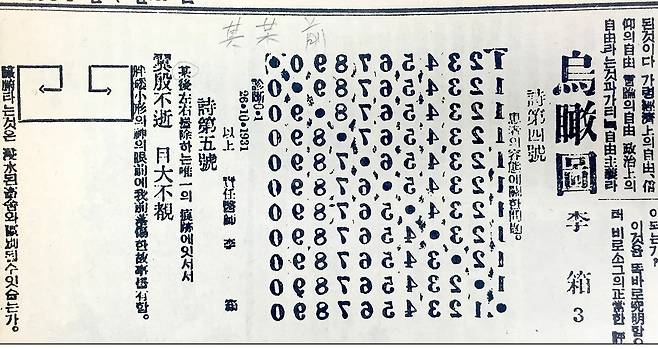 된것이다 가령經濟上의 自由, 信
仰의自由 言論의自由 政治上의
自由라는것과가티 自由主義라
이되는가?
이것을 똑바로究明함
러 비로소그의正當한 評
烏瞰圖
李 箱
3
詩第四號
患者의容態에關한問題。
•0987654321
0•987654321
09•87654321
098•7654321
0987•654321
09876•54321
098765•4321
0987654•321
09876543•21
098765432•1
0987654321•
診斷 0·1
26·10·1931
以上 責任醫師 李 箱
其 某 前
詩第五號
某後左右를除하는唯一의 痕跡에잇서서
翼殷不逝 目大不覩
胖矮小形의神의眼前에我前落傷한故事를有함。
臟腑라는것은 浸水된畜舍와區別될수잇슬는가。